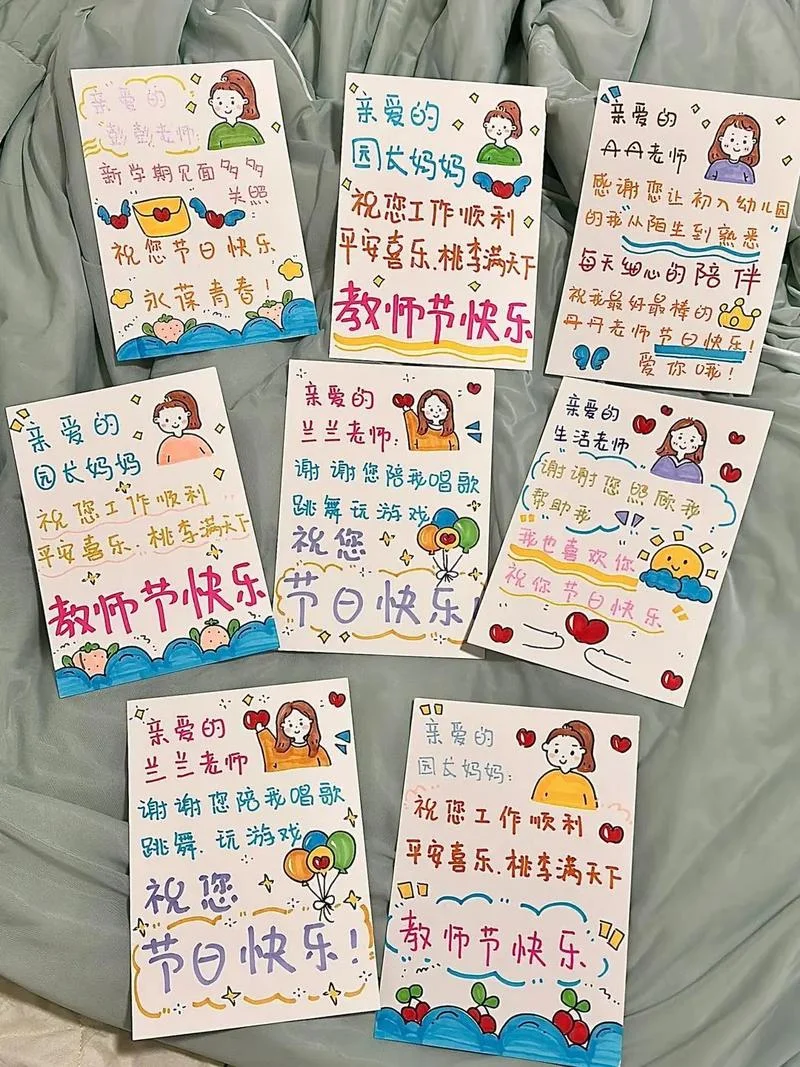 亲爱的
彭彭老师:
新学期见面多多
关照
祝您节日快乐
永葆青春!
亲爱的
园长妈妈
祝您工作顺利
平安喜乐.桃李满天下
教师节快乐
亲爱的
丹丹老师
感谢您让初入幼儿园
的我"从陌生到熟悉"
每天细心的陪伴
祝我最好最棒的
丹丹老师节日快乐!
爱你哦!
亲爱的
园长妈妈
祝您工作顺利
平安喜乐.桃李满天下
教师节快乐
亲爱的
兰兰老师:
谢谢您陪我唱歌
跳舞玩游戏
祝您
节日快乐!
亲爱的
生活老师
谢谢您照顾我
帮助我
我也喜欢你
祝你节日快乐
亲爱的
兰兰老师
谢谢您陪我唱歌
跳舞.玩游戏
祝您
节日快乐!
亲爱的
园长妈妈:
祝您工作顺利
平安喜乐.桃李满天下
教师节快乐